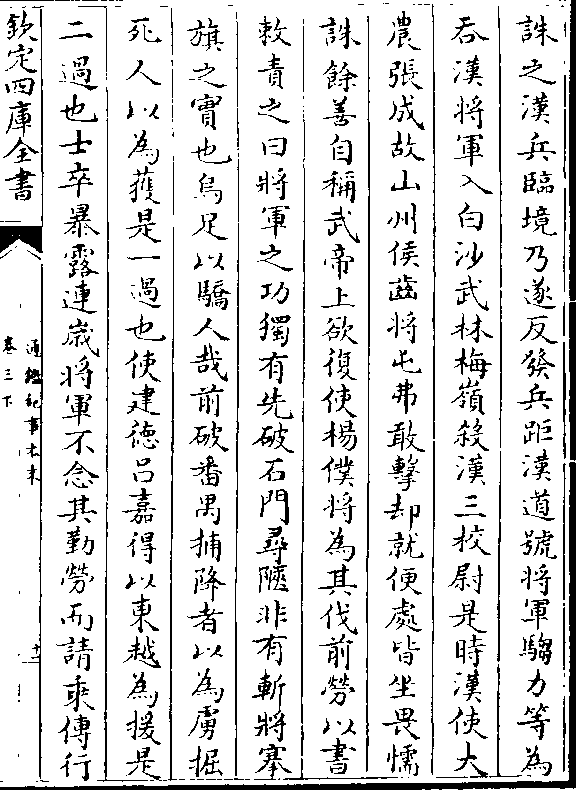 誅之漢兵臨境乃遂反發兵距漢道號將軍騶力等為
吞漢將軍入白沙武林梅嶺殺漢三校尉是時漢使大
農張成故山州侯齒將屯弗敢擊却就便處皆坐畏懦
誅餘善自稱武帝上欲復使楊僕將為其伐前勞以書
敕責之曰將軍之功獨有先破石門尋陿非有斬將搴
旗之實也烏足以驕人哉前破番禺捕降者以為虜掘
死人以為獲是一過也使建德吕嘉得以東越為援是
二過也士卒暴露連嵗將軍不念其勤勞而請乘傳行
欽定四庫全書
通鑑紀事本末
卷三下
十一